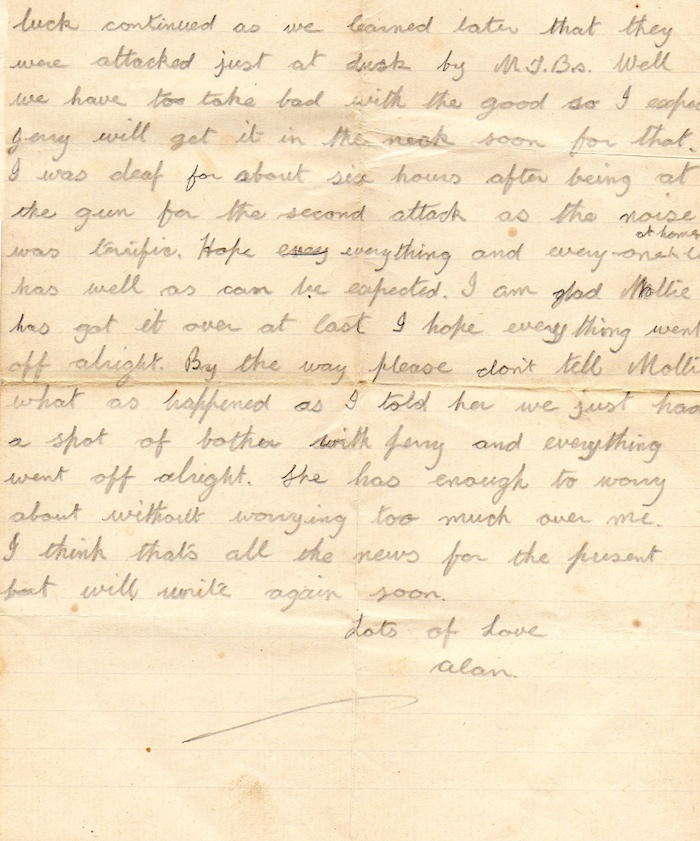 luck continued as we learned later that they
were attacked just at dusk by M.T.B.s. Well
we have too take bad with the good so I expec
jerry will get it in the neck soon for that.
I was deaf for about six hours after being at
the gun for the second attack as the noise
at home
was terrific. Hope every everything and every one
has well as can be expected. I am glad Mollie
has got it over at last I hope everything went
off alright. By the way please don't tell Molli
what as happened as I told her we just had
a spot of bother with jerry and everything
went off alright. She has enough to worry
about without worrying too much over me.
I think that's all the news for the present
but will write again soon.
Lots of Love
Alan.